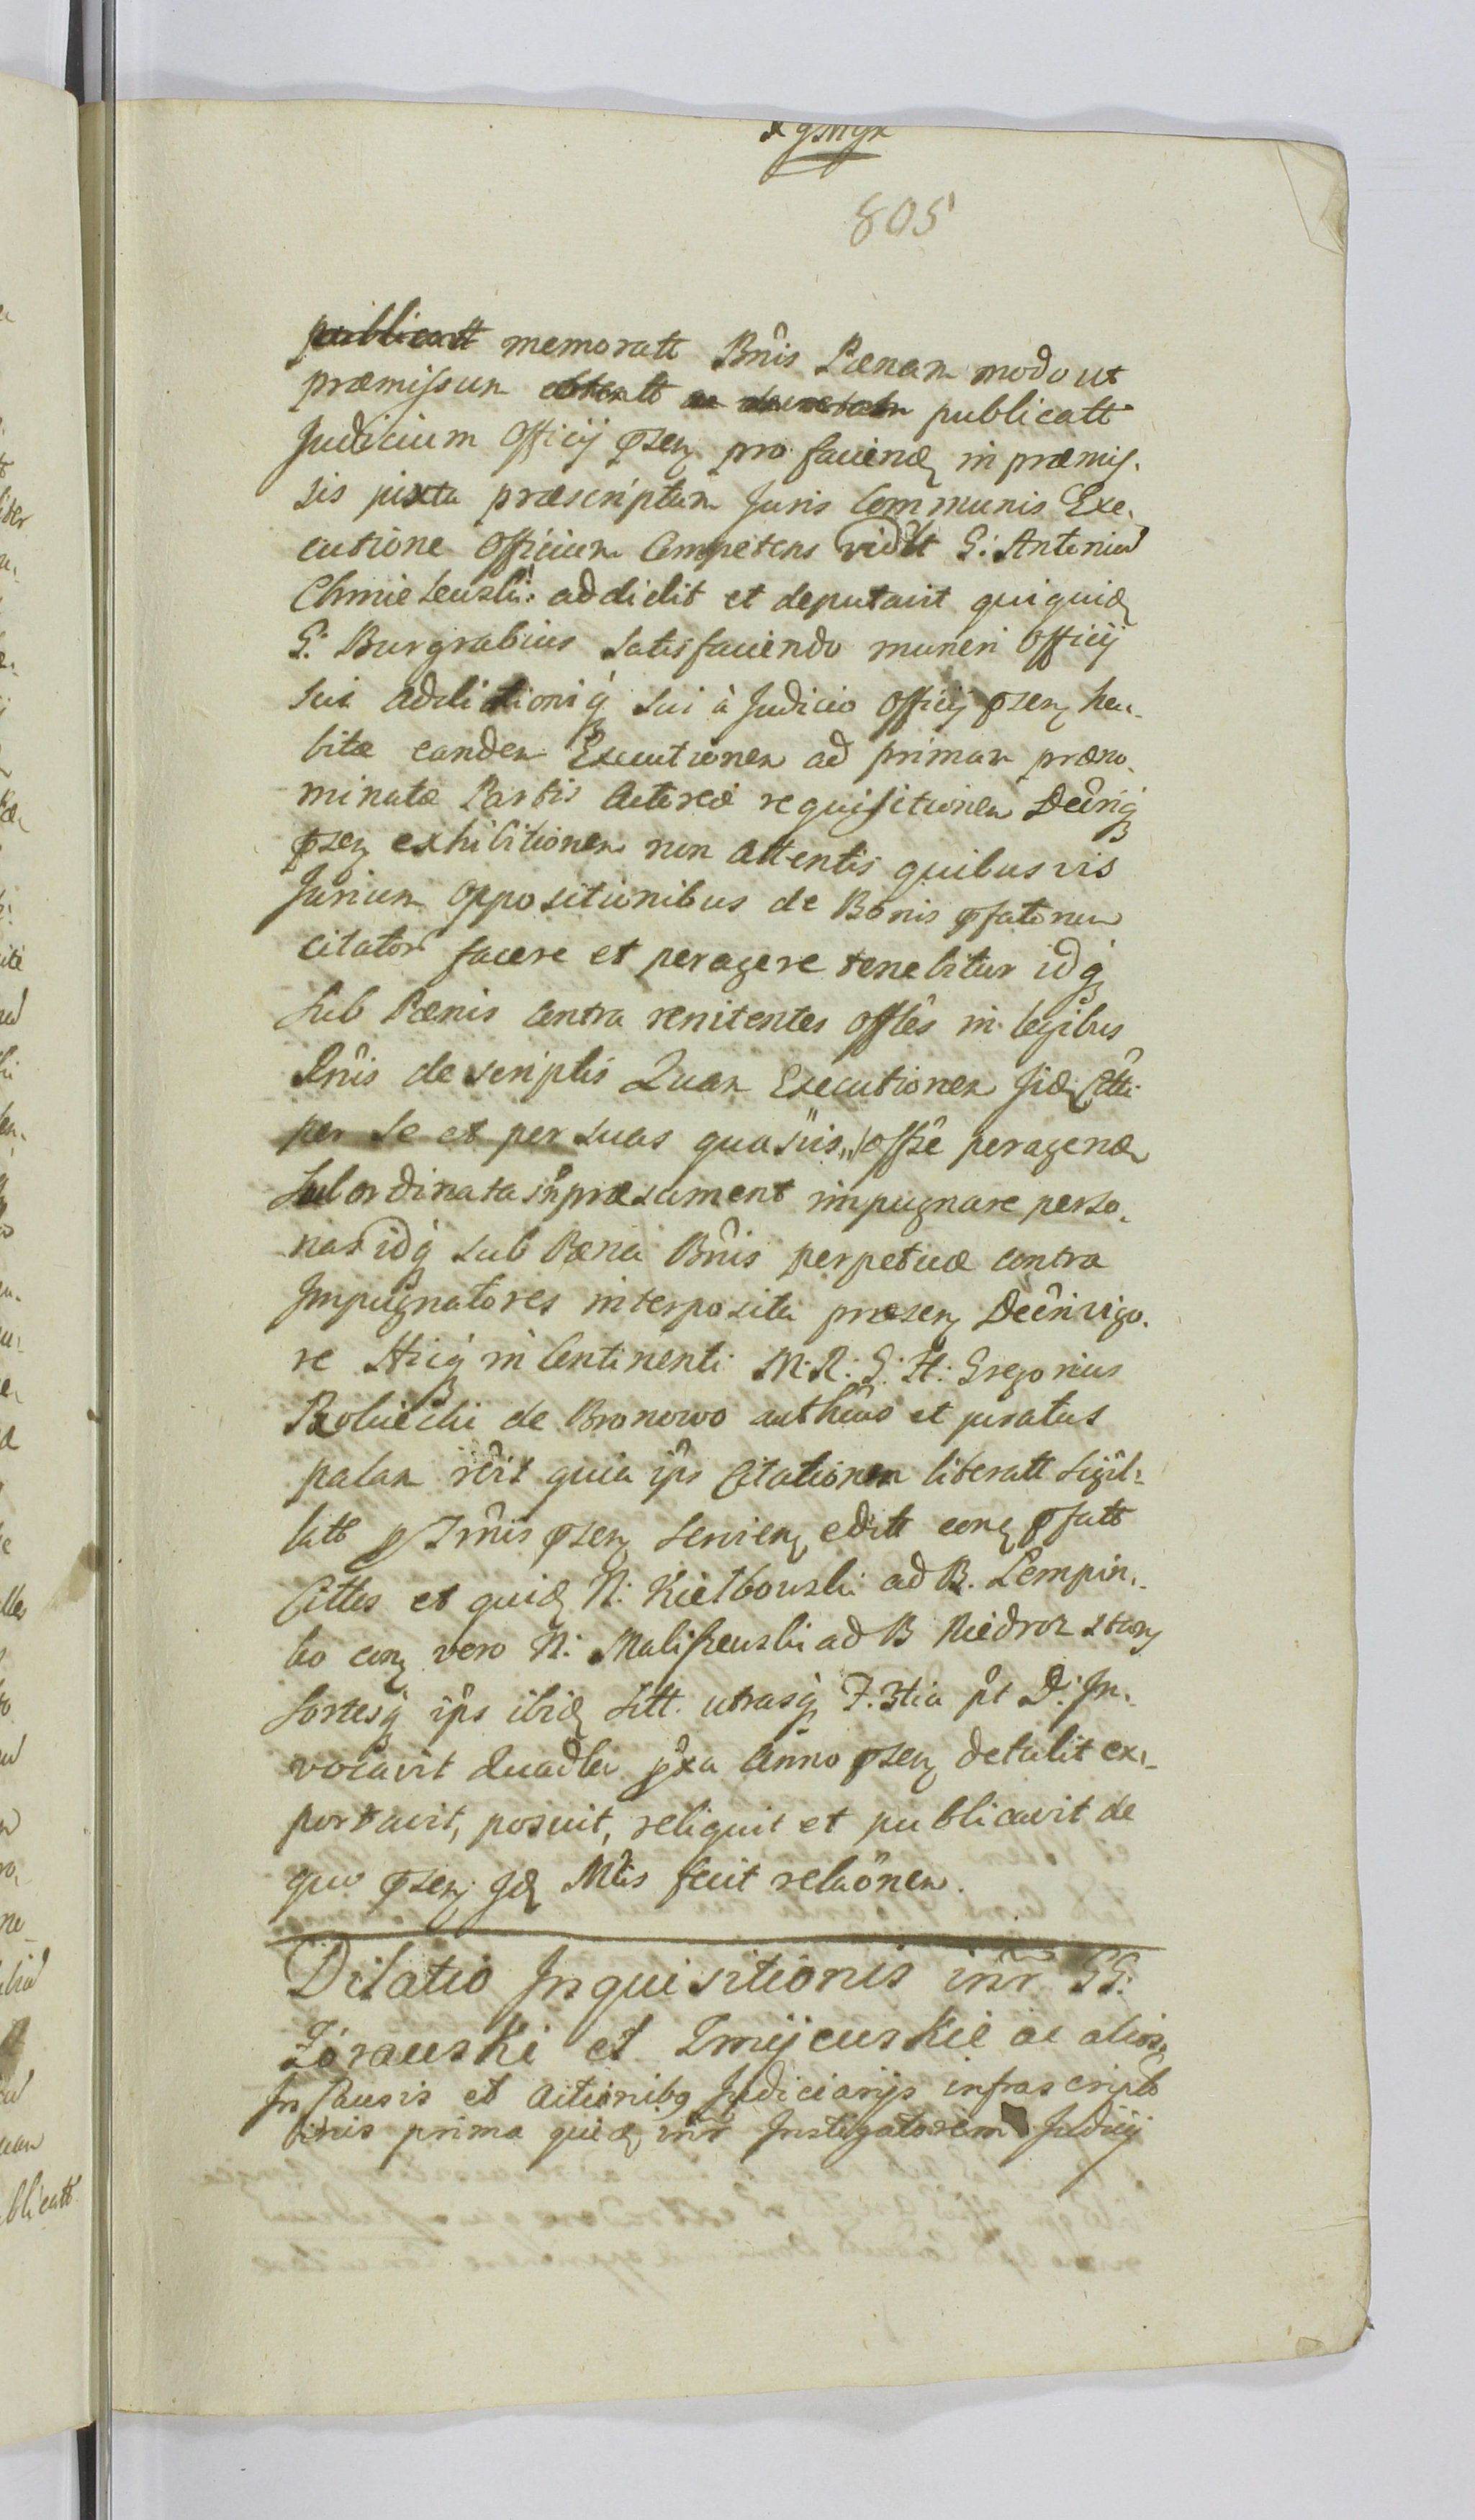 805
publicatt memoratt Bnis Pænam modo ut
præmissum publicatt
Judicium Officij psen pro faciend in præmis-
sis juxta præscriptum Juris Communis Exe-
cutione Officium Competens vidlt G: Antonium
Chmielewski addidit et deputavit qui quid
G: Burgrabius satisfaciendo muneri Officij
sui additioniq sui à Judicio Officij psen ha-
bitæ eandem Executionem ad primam præno-
minatæ Partis Actoreæ requisitionem Decriq
psen exhibitionem non attentis quibusvis
Jurium oppositionibus de Bonis pfatorum
citator facere et peragere tenebitur idq
sub Pænis contra renitentes Offles in legibus
Rnis descriptis Quam Executionem Jid Citti
per se et per suas quasuis Offse peragend
subordinatas npræsument impugnare perso-
nas idq sub Pæna Bnis perpetuæ contra
Impugnatores interposita præsen Decri vigo-
re Hicq in Continenti M: R: G: H: Gregorius
de Bronowo authcus et juratus
palam rcit quia ips Citationem liberatt Sigil-
latt p Trmis psen servien editt con pfatt
Cittes et quid N: Kiełbowski ad B. Lempin-
ko con vero N: Maliszewski ad B Niedroz stary
sortesq ips ibid sitt. utrasq F. 3tia pt D: In-
vocavit Quadla pxa Anno psen detulit ex-
portavit, posuit, reliquit et publicavit de
quo psen Jd Mtis fecit relaonem.
Dilatio Inquisitionis intr GG:
Zórawski et Zmijewskie ac alios
In Causis et Actionibq Judiciarijs infrascript
binis prima quid intr Instigatorem Judicij